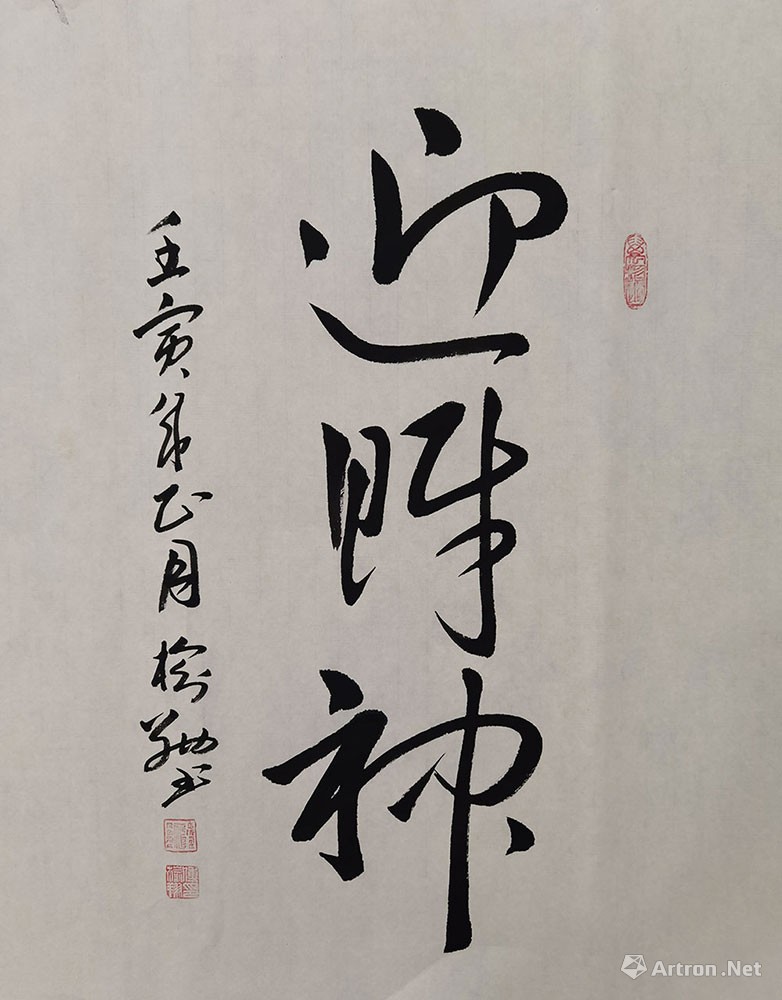 迎财神
壬寅年正月
Artron.Net